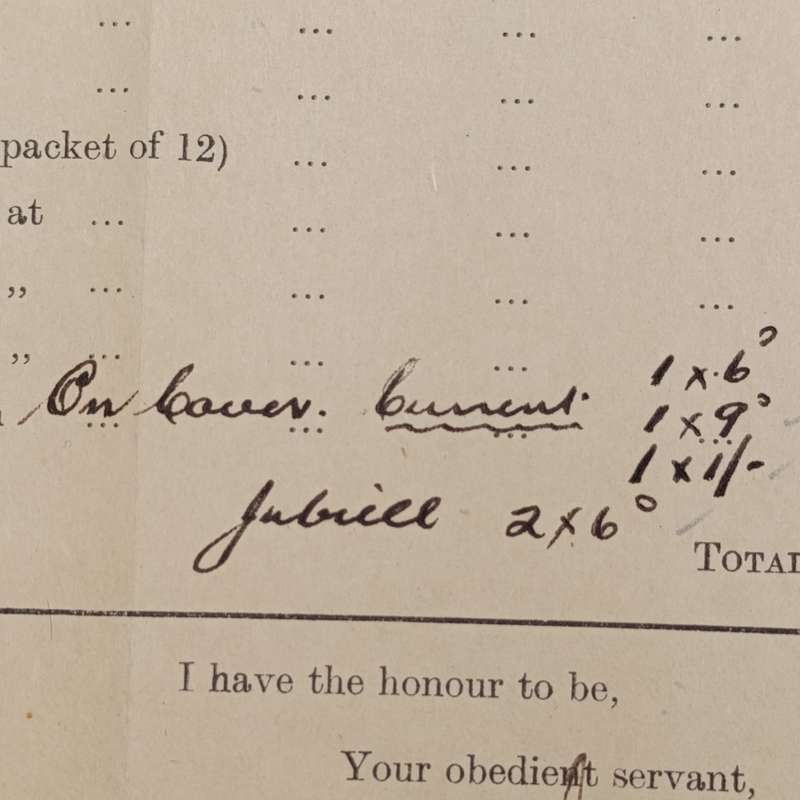 ... ... ... ...
... ... ... ...
packet of 12) ... ... ...
at ... ... ... ...
„ ... ... ... ...
„ ... ... ...
On Cover. Current. 1 x 6º
1 x 9º
1 x 1/-
Jubilee 2 x 6º
TOTAL
I have the honour to be,
Your obedient servant,